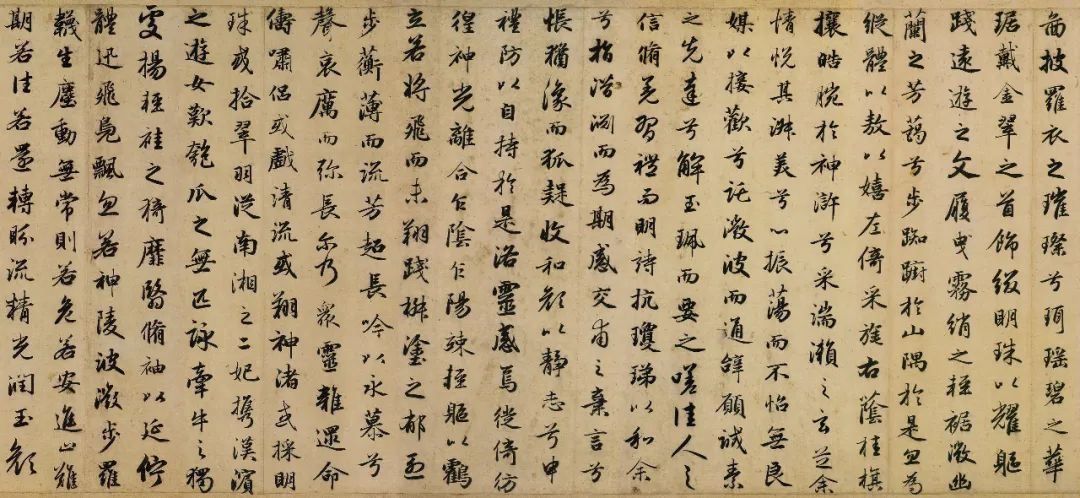 而披羅衣之璀璨兮珥瑤碧之華
琚戴金翠之首飾綴明珠以耀軀
踐遠遊之文履曳霧綃之輕裾微幽
蘭之芳藹兮步踟躕於山隅於是忽焉
縱體以敖以嬉左倚采旄右蔭桂旗
攘皓腕於神滸兮采湍瀨之玄芝余
情悅其淑美兮心振蕩而不怡無良
媒以接歡兮託微波而通辭願誠素
之先達兮解玉珮而要之嗟佳人之
信脩羌習禮而明詩抗瓊珶以和余
兮指潛淵而為期感交甫之棄言兮
悵猶豫而狐疑收和顏以靜志兮申
禮防以自持於是洛靈感焉徙倚彷
徨神光離合乍陰乍陽竦輕軀以鶴
立若將飛而未翔踐椒塗之郁烈
步蘅薄而流芳超長吟以永慕兮
聲哀厲而弥長尓乃衆靈雜遝命
儔嘯侶或戲清流或翔神渚或採明
珠或拾翠羽從南湘之二妃攜漢濱
之遊女歎匏瓜之無匹詠牽牛之獨
處揚輕袿之猗靡翳脩袖以延佇
體迅飛鳧飄忽若神陵波微步羅
韈生塵動無常則若危若安進止難
期若往若還轉眄流精光潤玉顏